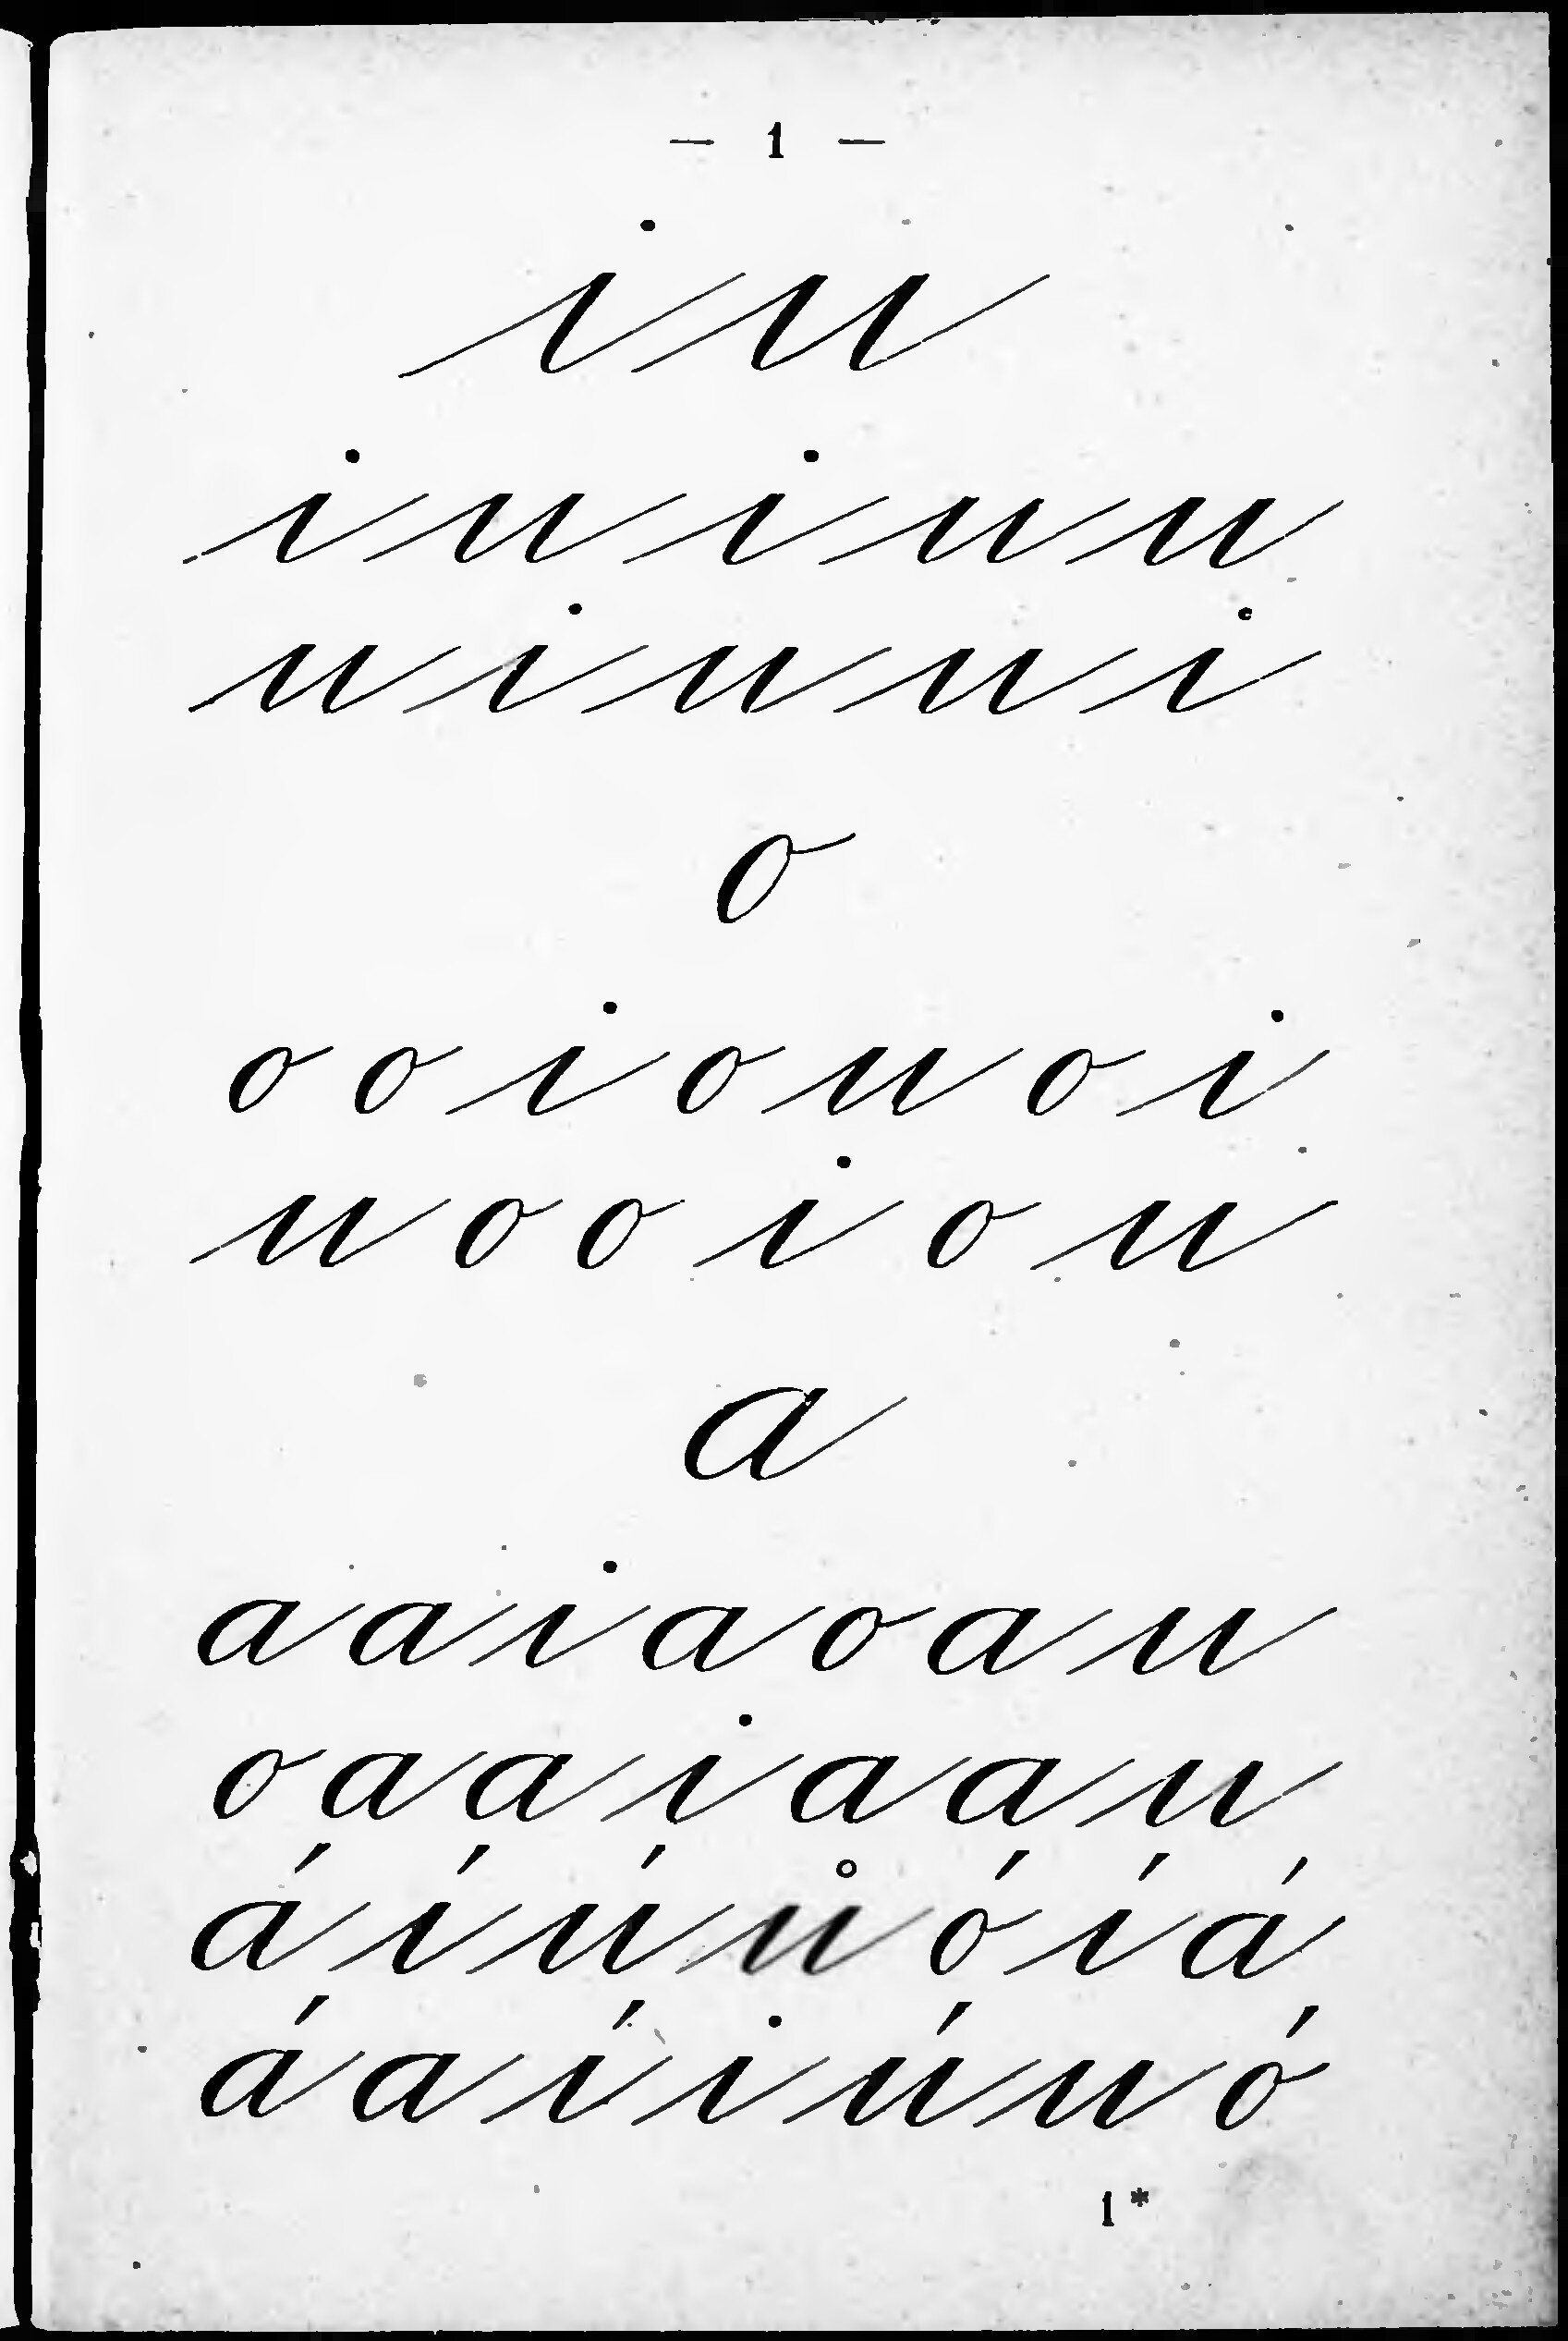 — 1 —
i u
i u i u u
u i u u i
o
o o i o u o i
u o o i o u
a
a a i a o a u
o a a i a a u
á í ú ů ó í á
á a í i ú u ó
1*